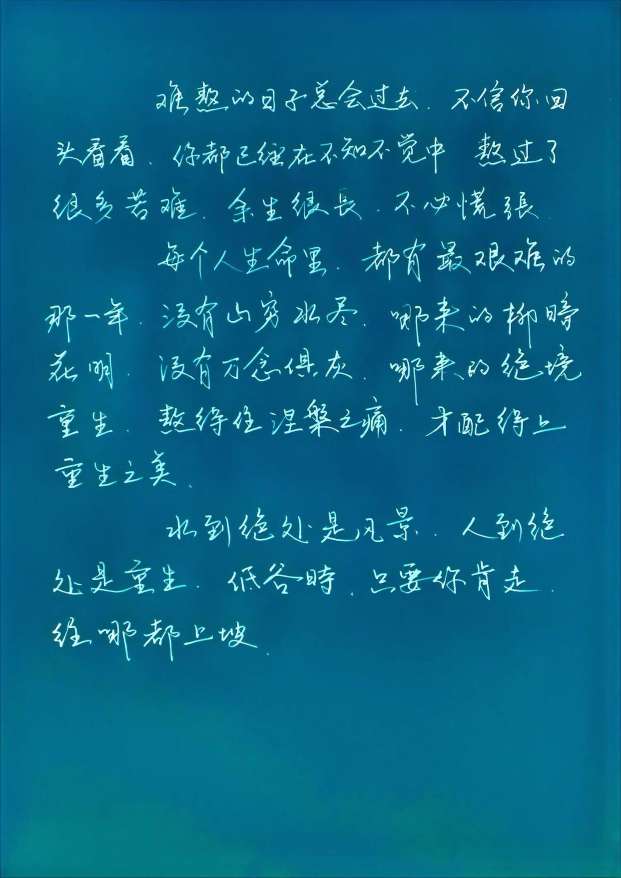 难熬的日子总会过去.不信你回
头看看.你都已经在不知不觉中 熬过了
很多苦难.余生很長.不必慌張.
每个人生命里.都有最艰难的
那一年.没有山穷水尽.哪来的柳暗
花明.没有万念俱灰.哪来的绝境
重生.熬得住涅槃之痛.才配得上
重生之美.
水到绝处是风景.人到绝
处是重生.低谷時.只要你肯走.
经哪都上坡.